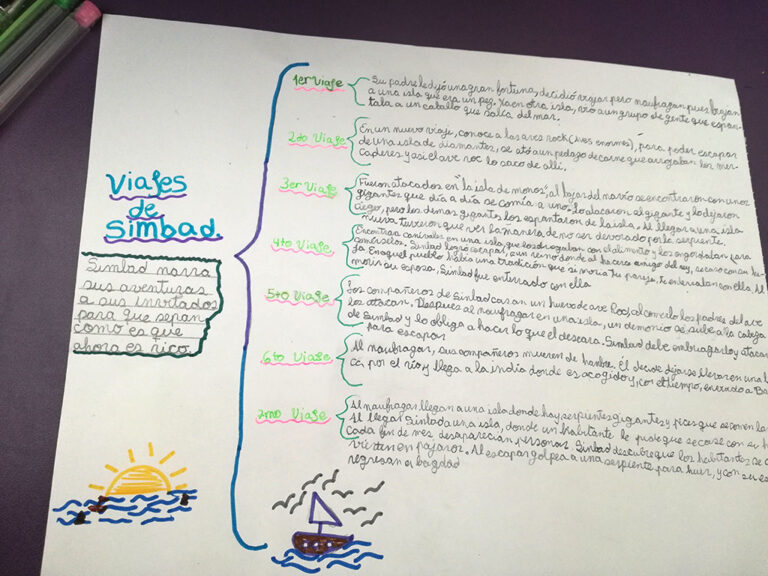 Viajes
de
Simbad.
Simbad narra
sus aventuras
a sus invitados
para que sepan
como es que
ahora es rico.
1er Viaje
Su padre le dejó una gran fortuna, decidió viajar pero naufragan pues bajan
a una isla que era un pez. Ya en otra isla, vio a un grupo de gente que espan-
taba a un caballo que salía del mar.
2do Viaje
En un nuevo viaje, conoce a las aves rock (aves enormes), para poder escapar
de una isla de diamantes, se ató a un pedazo de carne que arrojaban los mer-
caderes y asi el ave roc lo saco de allí.
3er Viaje
Fueron atacados en "la isla de monos", al bajar del navío se encontraron con unos
gigantes que día a día se comía a uno. Atacaron al gigante y lo dejaron
ciego, pero los demas gigantes los espantaron de la isla. Al llegar a una isla
nueva tuvieron que ver la manera de no ser devorado por la serpiente.
4to Viaje
Encontraron caníbales en una isla, que los drogaban con el alimento y los engordaban para
comérselos, Simbad logro escapar, a un reino donde al hacerse amigo del rey, se caso con su
En aquel pueblo había una tradición que si moria tu pareja, te enterraban con ella. Al
morir su esposa, Simbad fue enterrado con ella
5to Viaje
Los compañeros de Simbad cazan un huevo de ave Roc, al comerlo los padres del ave
los atacan. Despues al naufragar en una isla, un demonio se sube a la cabeza
de Simbad y lo obliga a hacer lo que el deseara. Simbad debe embriagarlo y atacar
para escapar
6to Viaje
Al naufragar, sus compañeros mueren de hambre. Él decide dejarse llevar en una
por el rio y llega a la india donde es acogido y, con el tiempo, enviado a
7mo Viaje
Al naufragar llegan a una isla donde hay serpientes gigantes y peces que se comen la
Al llegar Simbad a una isla, donde un habitante le pide que se case con su
Cada fin de mes desaparecían personas. Simbad descubre que los habitantes se
vierten en pájaros. Al escapar golpea a una serpiente para huir, y con su
regresan a bagdad